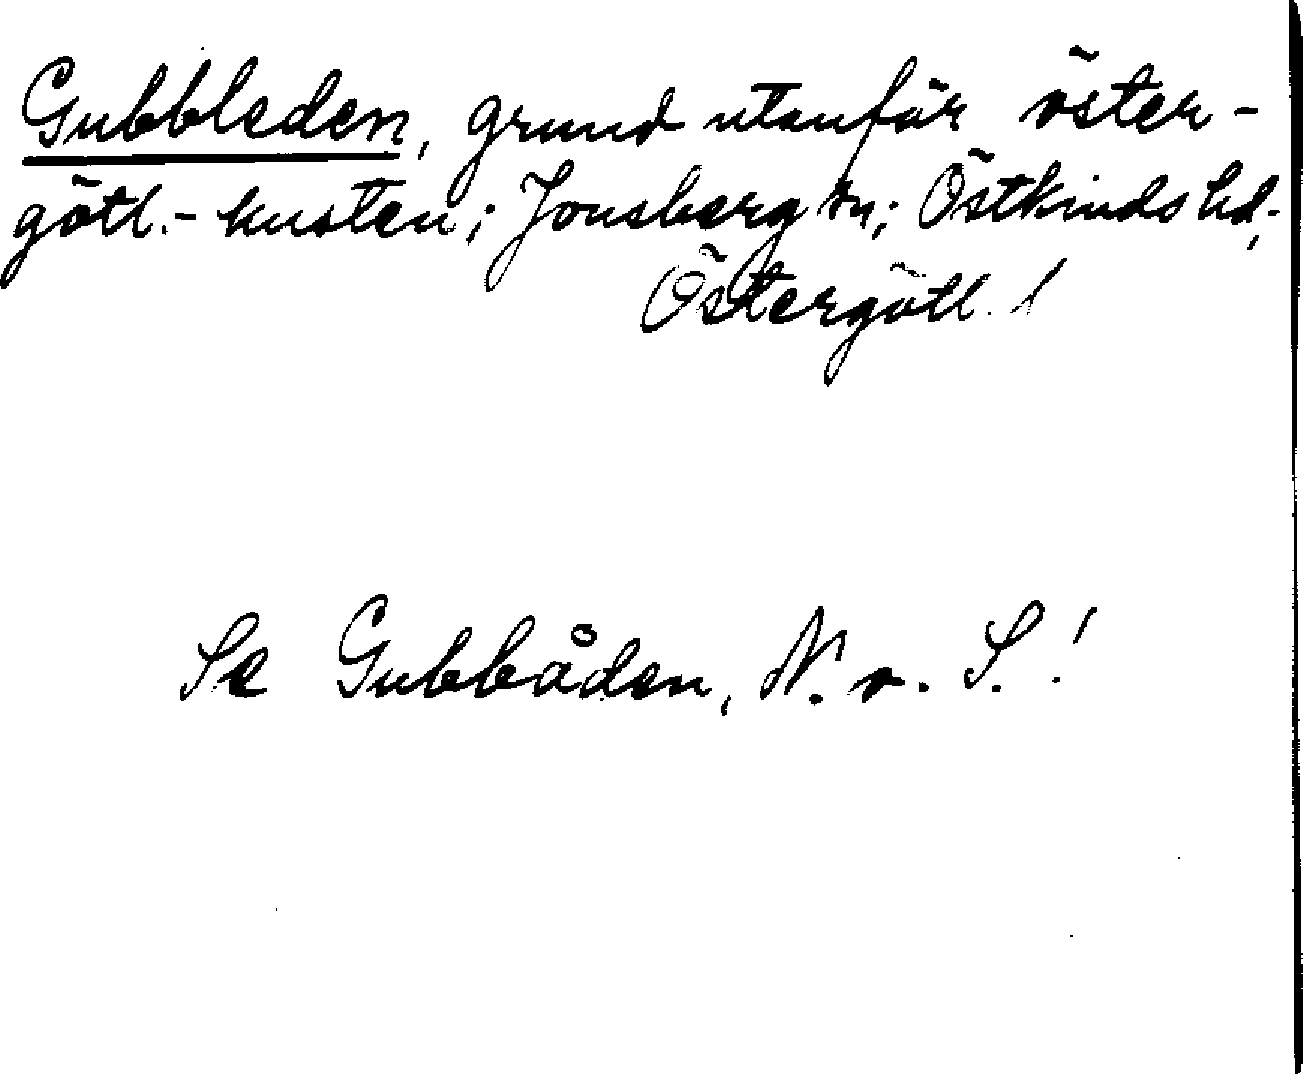 Gubbleden, grund utanför öster-
götl.-kusten; Jonsberg sn; Östkinds hd,
Östergötl.!
Se Gubbåden, N. o. S.!